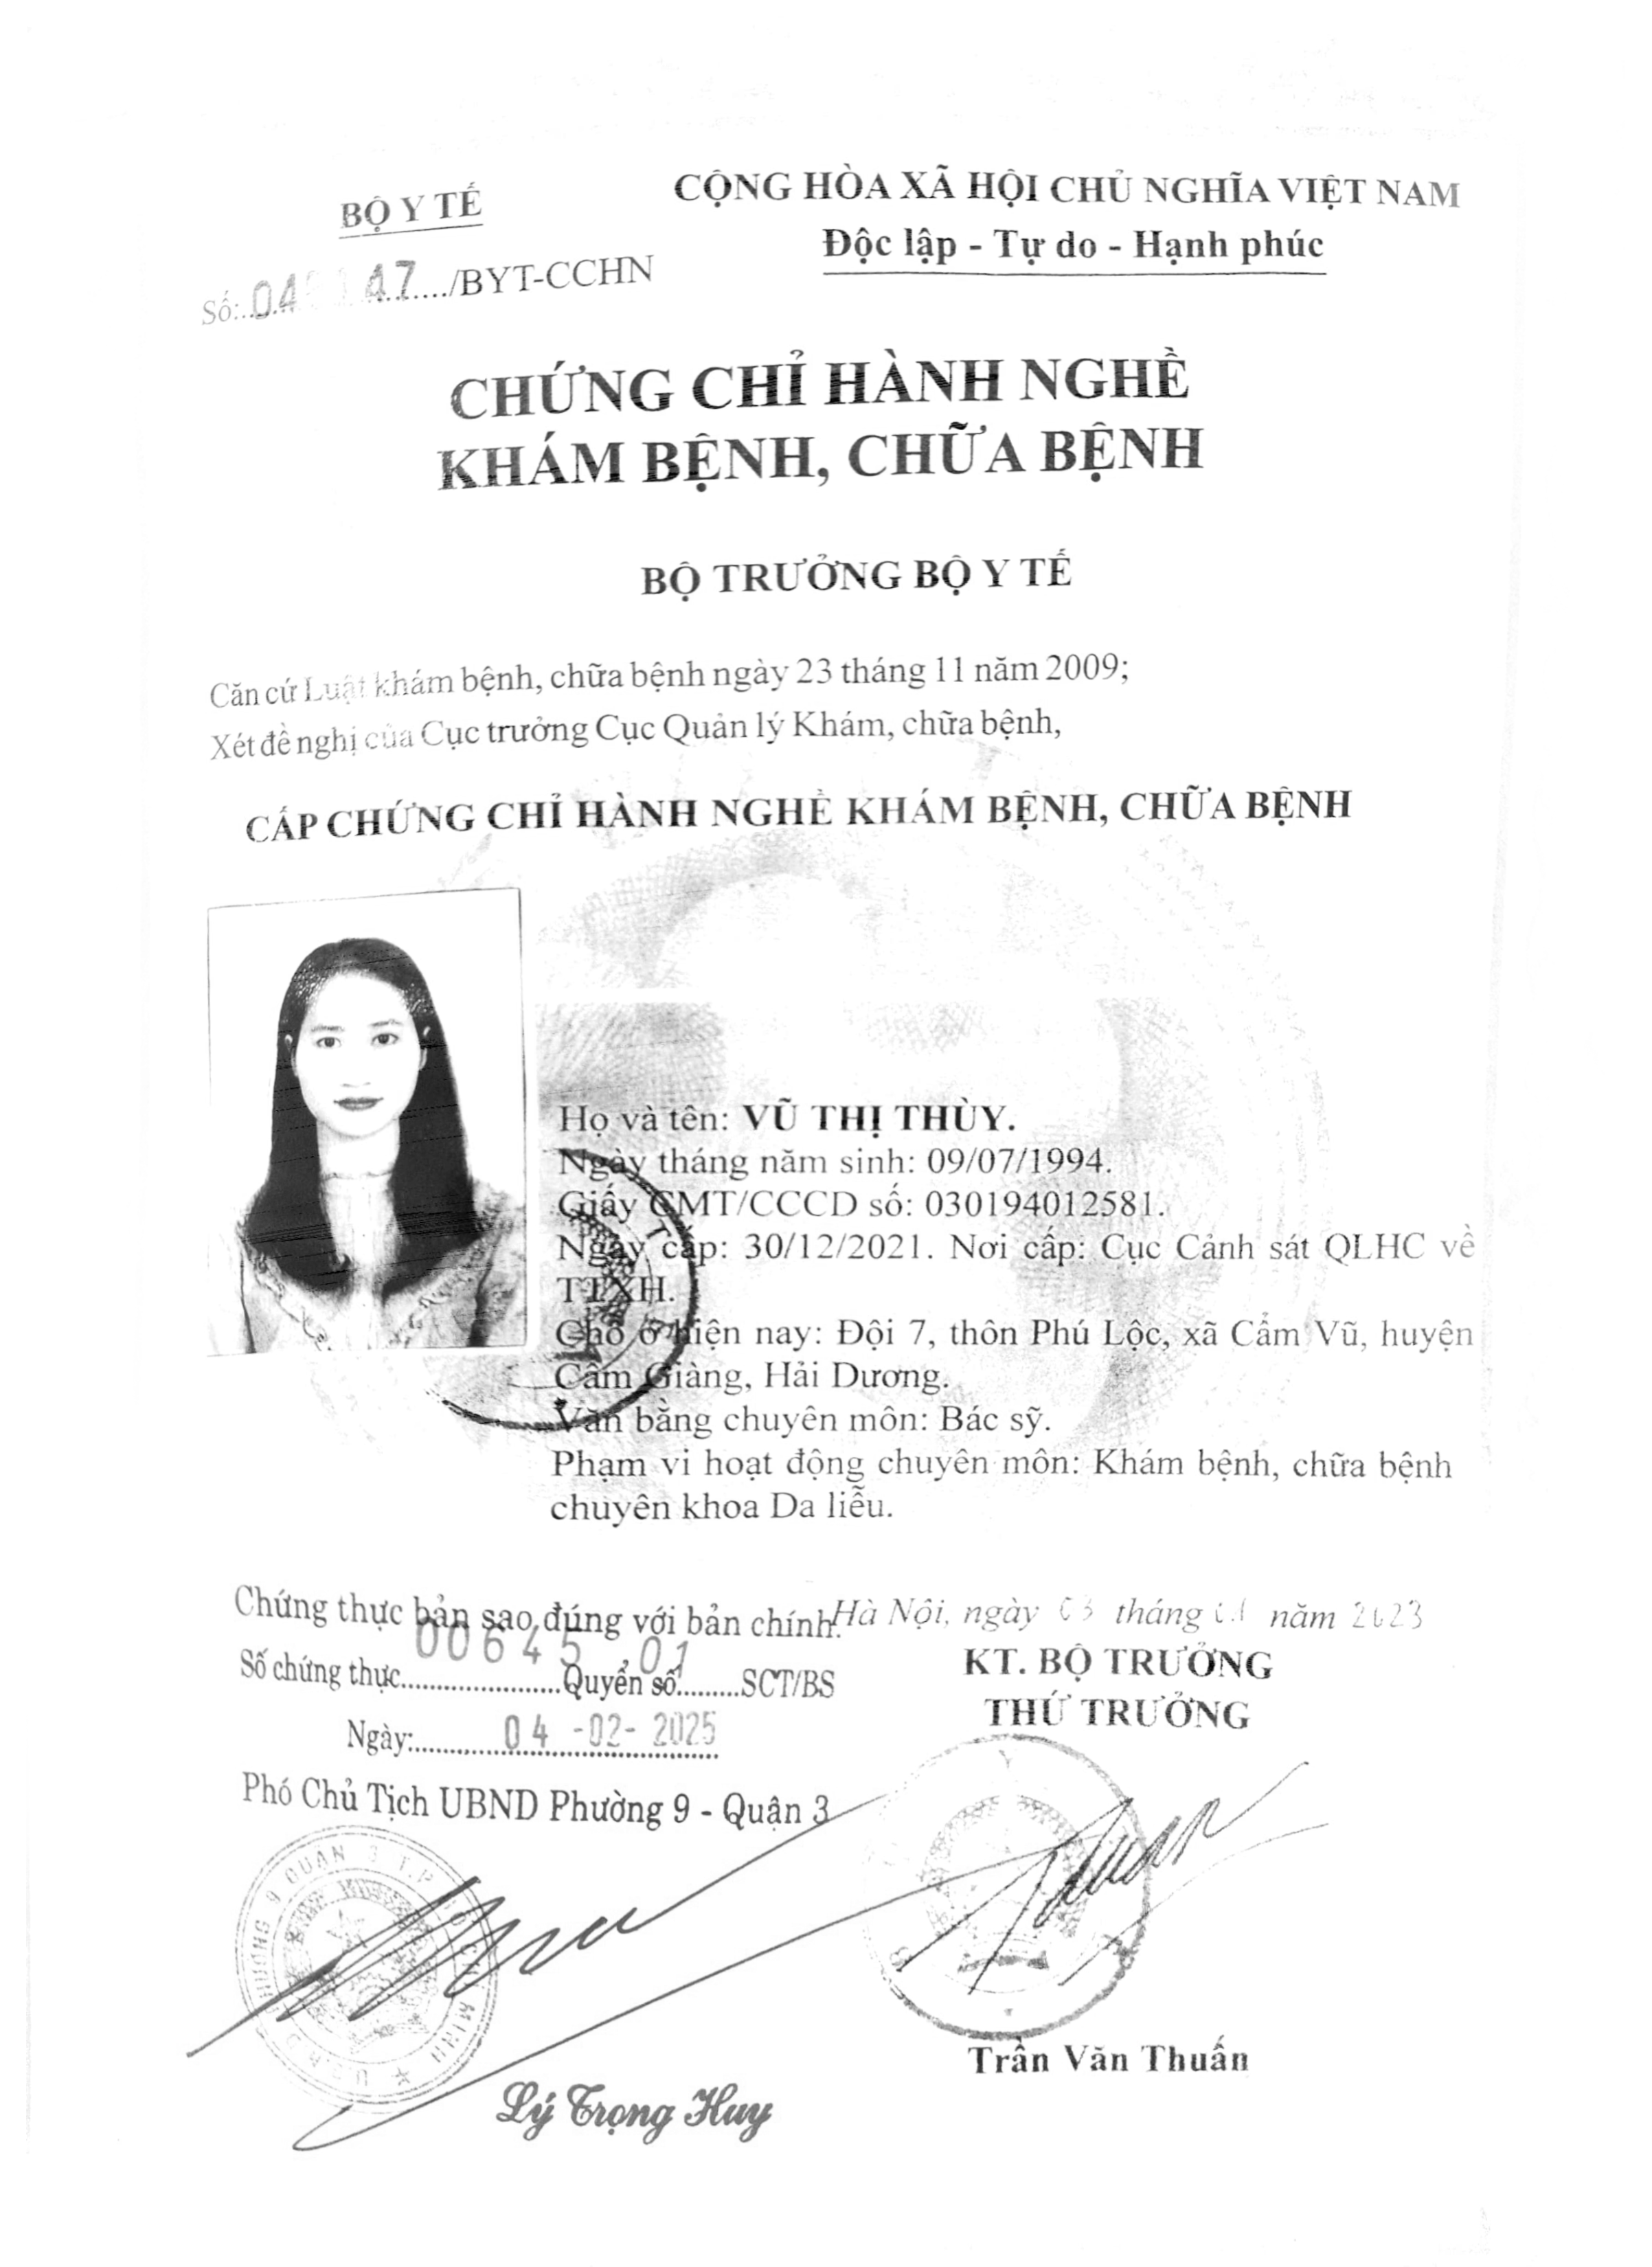 BỘ Y TẾ
Số:........../BYT-CCHN
CỘNG HÒA XÃ HỘI CHỦ NGHĨA VIỆT NAM
Độc lập - Tự do - Hạnh phúc
CHỨNG CHỈ HÀNH NGHỀ
KHÁM BỆNH, CHỮA BỆNH
BỘ TRƯỞNG BỘ Y TẾ
Căn cứ Luật khám bệnh, chữa bệnh ngày 23 tháng 11 năm 2009;
Xét đề nghị của Cục trưởng Cục Quản lý Khám, chữa bệnh,
CẤP CHỨNG CHỈ HÀNH NGHỀ KHÁM BỆNH, CHỮA BỆNH
Họ và tên: VŨ THỊ THÙY.
Ngày tháng năm sinh: 09/07/1994.
Giấy CMT/CCCD số: 030194012581.
Ngày cấp: 30/12/2021. Nơi cấp: Cục Cảnh sát QLHC về
TTXH.
Chỗ ở hiện nay: Đội 7, thôn Phú Lộc, xã Cẩm Vũ, huyện
Cẩm Giàng, Hải Dương.
Văn bằng chuyên môn: Bác sỹ.
Phạm vi hoạt động chuyên môn: Khám bệnh, chữa bệnh
chuyên khoa Da liễu.
Hà Nội, ngày 03 tháng năm 2023
KT. BỘ TRƯỞNG
THỨ TRƯỞNG
Trần Văn Thuấn
Chứng thực bản sao đúng với bản chính.
Số chứng thực 00645 Quyển số 01 SCT/BS
Ngày: 04 -02- 2025
Phó Chủ Tịch UBND Phường 9 - Quận 3
Lý Trọng Huy